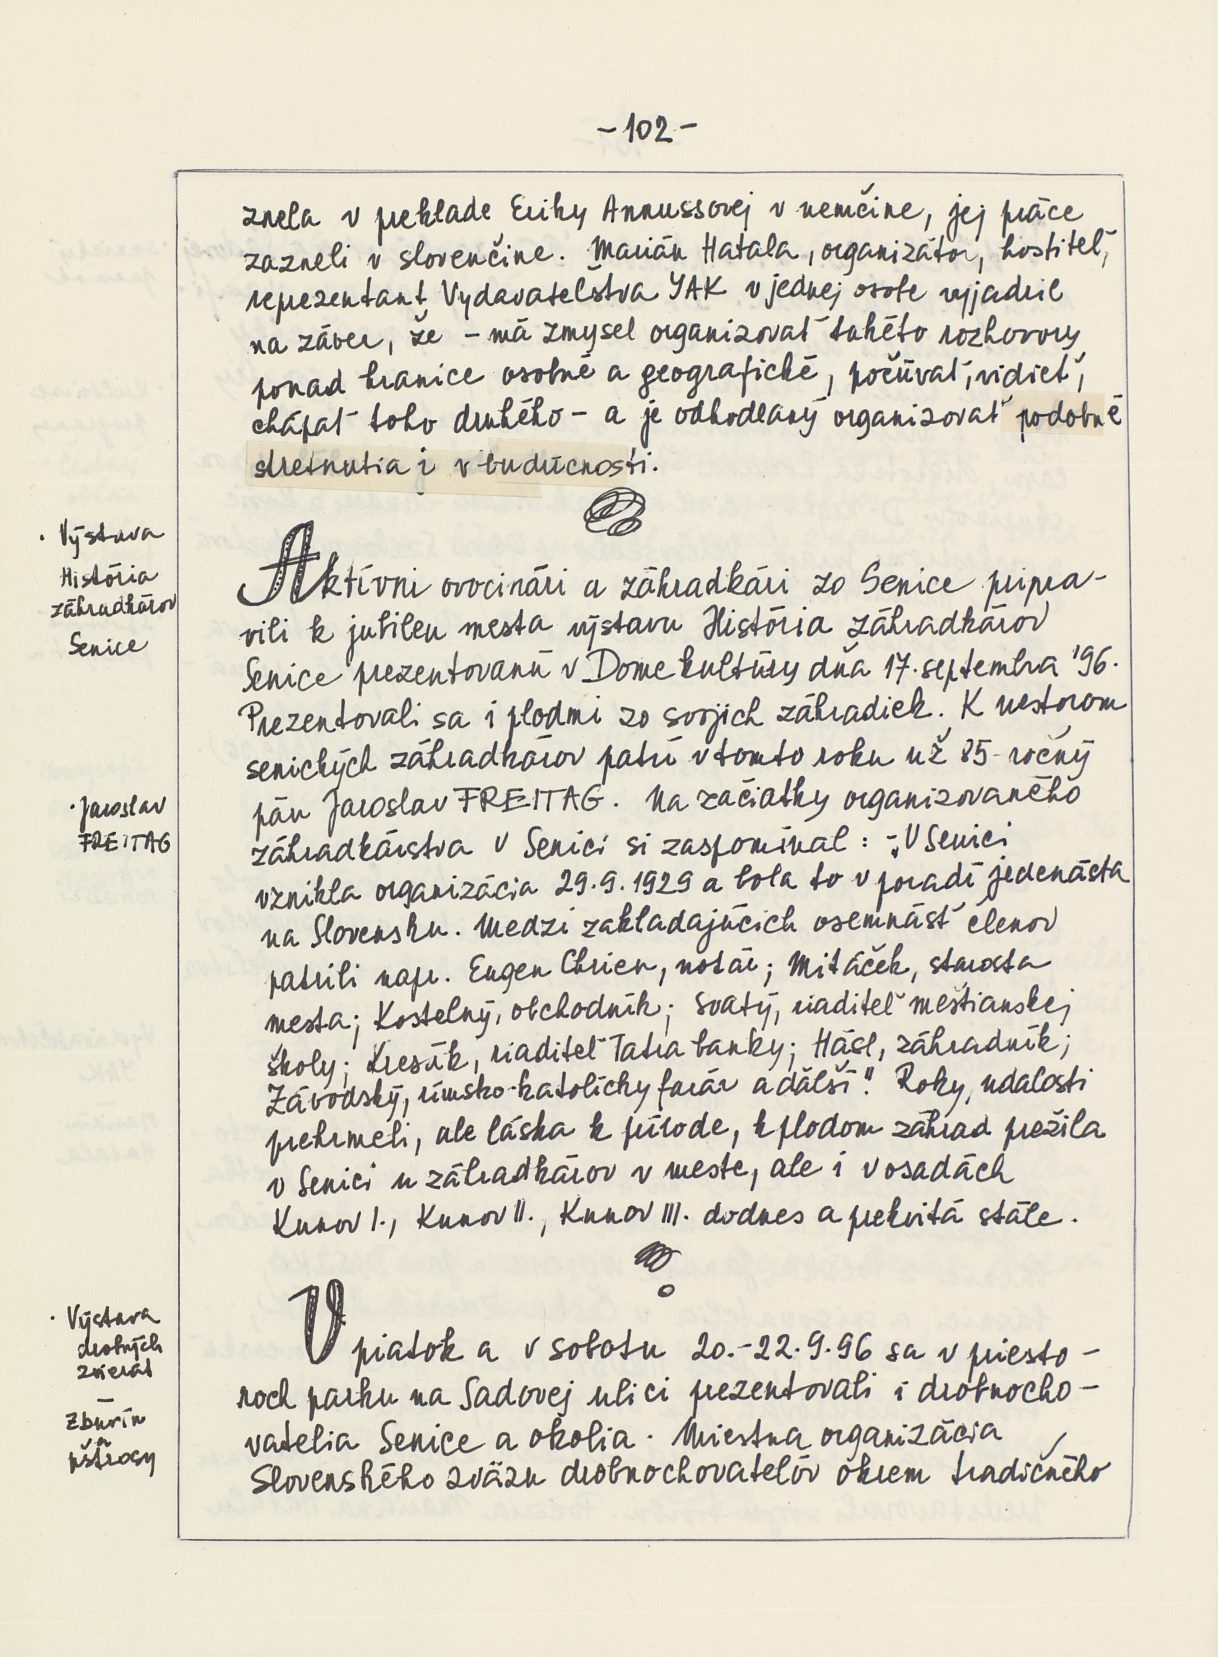 -102-
znela v preklade Eriky Annussovej v nemčine, jej práce
zazneli v slovenčine. Marián Hatala, organizátor, hostiteľ,
reprezentant Vydavateľstva YAK v jednej osobe vyjadril
na záver, že - má zmysel organizovať takéto rozhovory
ponad hranice osobné a geografické, počúvať, vidieť,
chápať toho druhého - a je odhodlaný organizovať podobné
stretnutia i v budúcnosti.
· Výstava
História
záhradkárov
Senice
Aktívni ovocinári a záhradkári zo Senice pripra-
vili k jubileu mesta výstavu História záhradkárov
Senice prezentovanú v Dome kultúry dňa 17. septembra '96.
Prezentovali sa i plodmi zo svojich záhradiek. K nestorom
senických záhradkárov patrí v tomto roku už 85-ročný
· Jaroslav
FREITAG
pán Jaroslav FREITAG. Na začiatky organizovaného
záhradkárstva v Senici si zaspomínal: -„V Senici
vznikla organizácia 29.9.1929 a bola to v poradí jedenásta
na Slovensku. Medzi zakladajúcich osemnásť členov
patrili napr. Eugen Chrien, notár; Mitáček, starosta
mesta; Kostelný, obchodník; Svatý, riaditeľ meštianskej
školy; Kresák, riaditeľ Tatra banky; Hásl, záhradník;
Závodský, rímsko-katolícky farár a ďálší." Roky, udalosti
prehrmeli, ale láska k prírode, k plodom záhrad prežila
v Senici u záhradkárov v meste, ale i v osadách
Kunov I., Kunov II., Kunov III. dodnes a prekvitá stále.
· Výstava
drobných
zvierat
-
Zbúrín
a
pštrosy
V piatok a v sobotu 20.-22.9.96 sa v priesto-
roch parku na Sadovej ulici prezentovali i drobnocho-
vatelia Senice a okolia. Miestna organizácia
Slovenského zväzu drobnochovateľov okrem tradičného